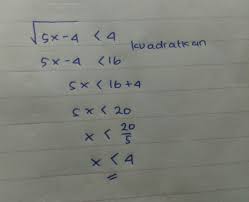 √5x-4 < 4 kuadratkan
5x-4 < 16
5x < 16+4
5x < 20
x < 20/5
x < 4